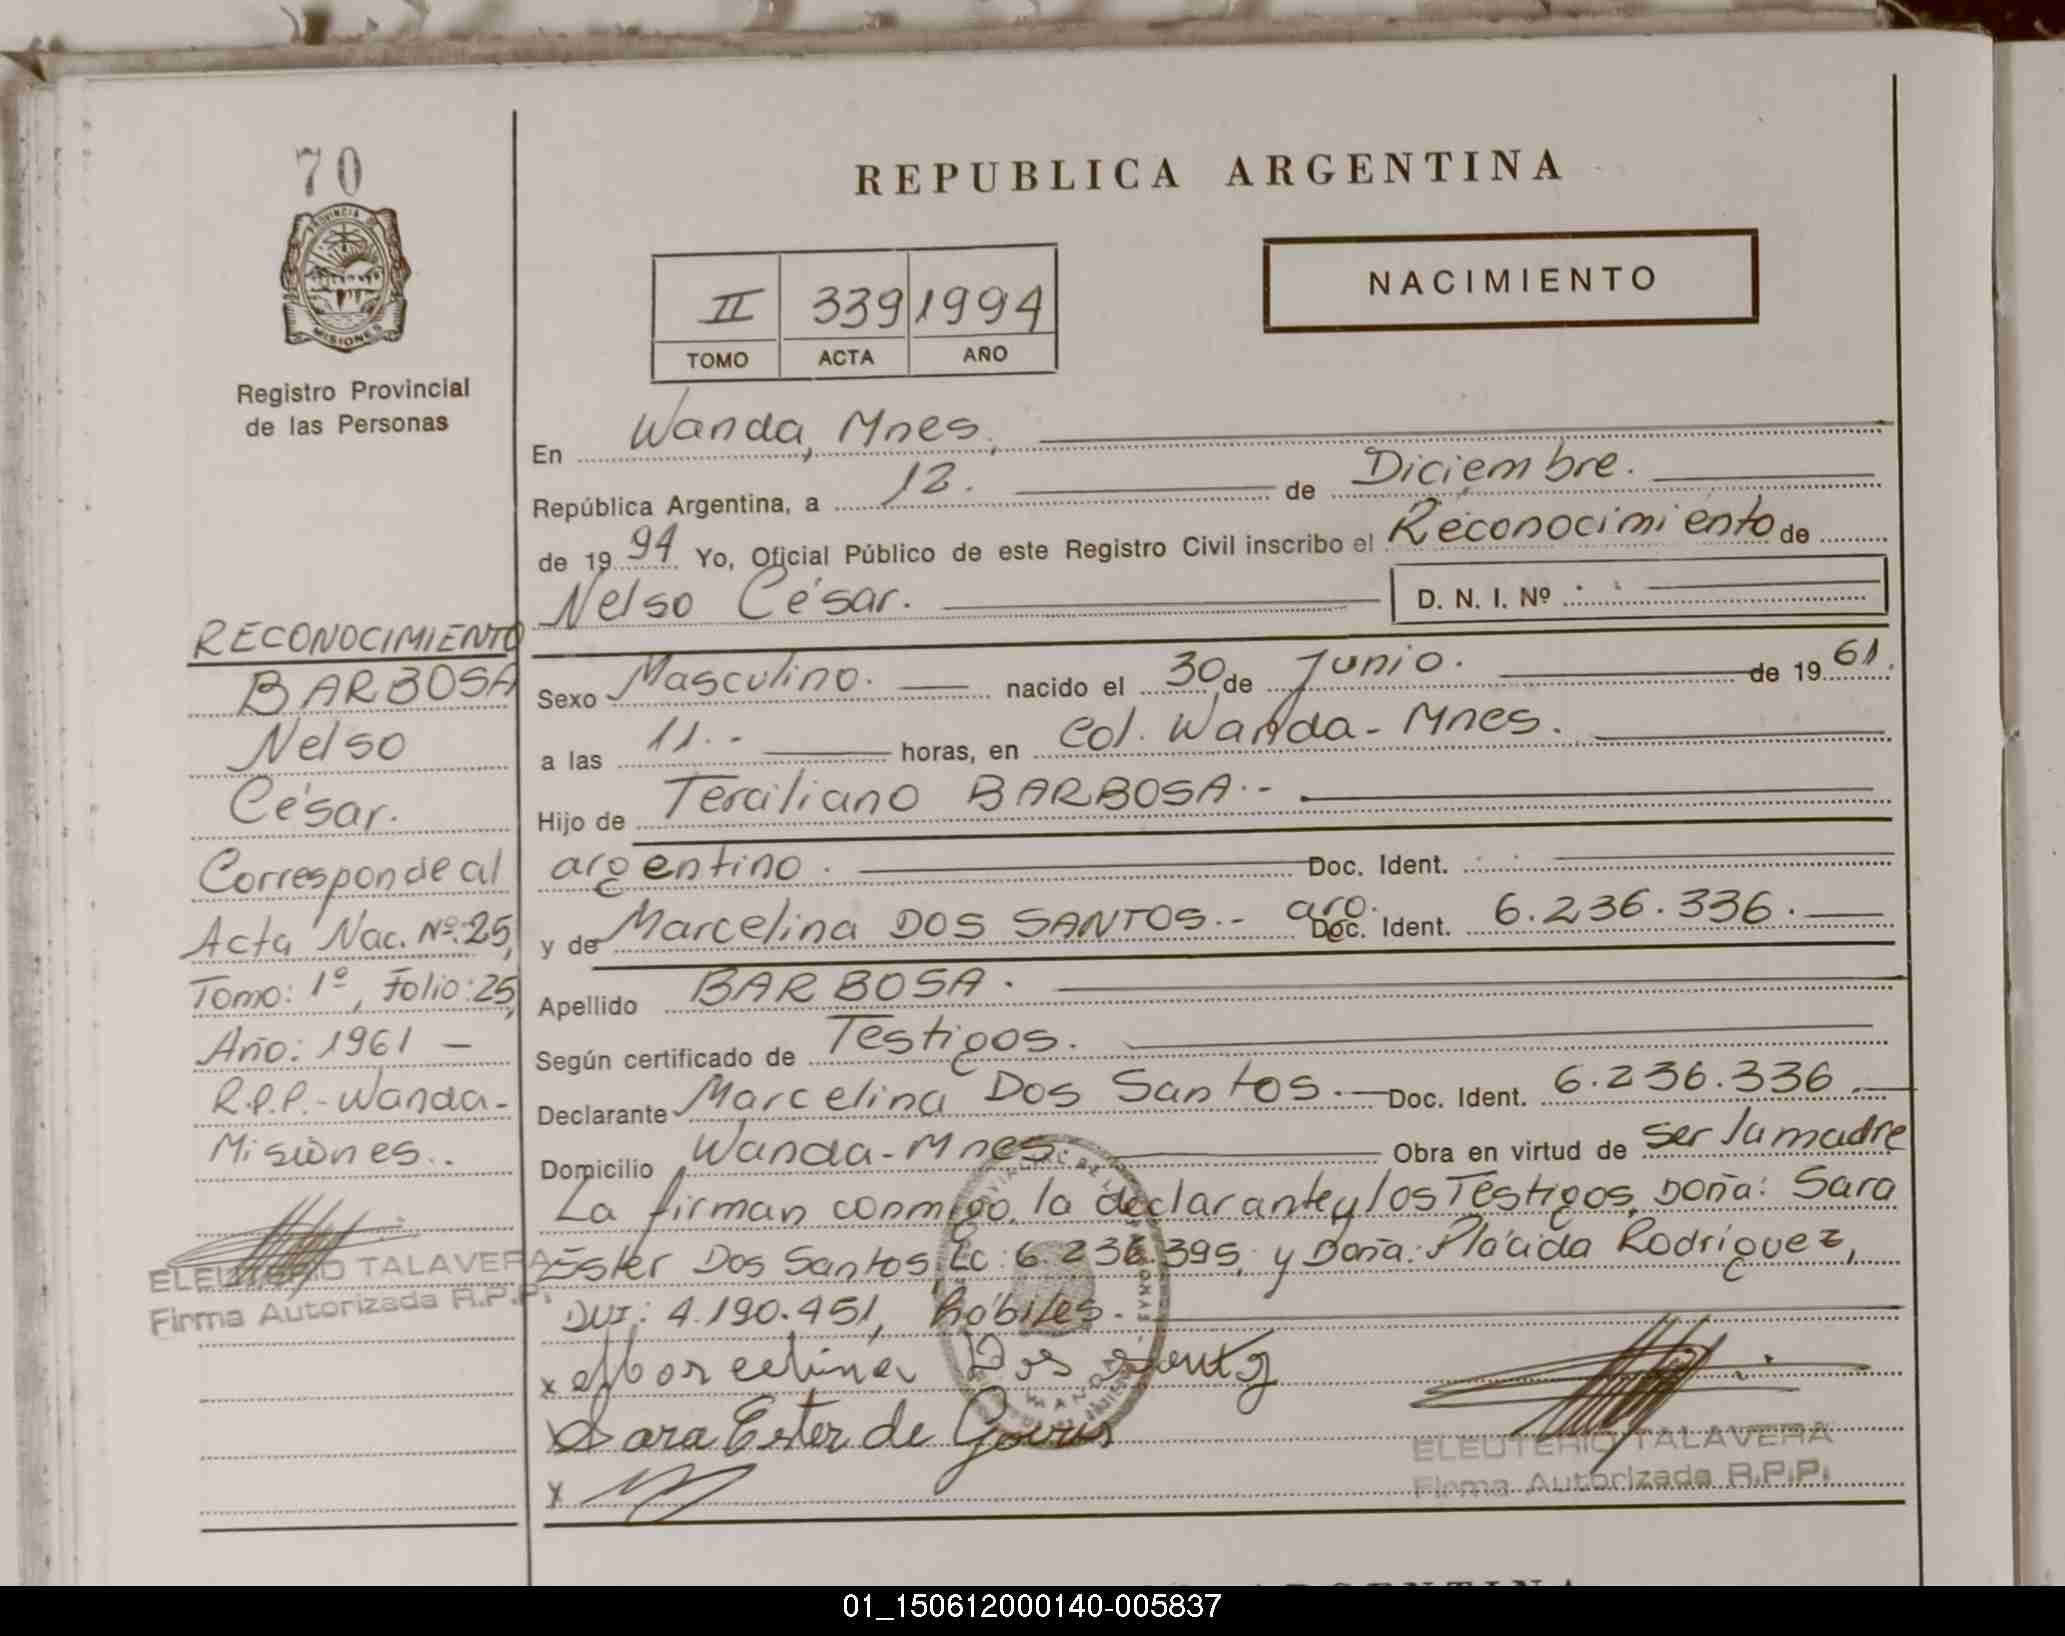 70
PROVINCIA DE
MISIONES
Registro Provincial
de las Personas
REPUBLICA ARGENTINA
NACIMIENTO
II 339 1994
TOMO ACTA AÑO
En Wanda, Mnes.
República Argentina, a 12. de Diciembre.
de 19 94 Yo, Oficial Público de este Registro Civil inscribo el Reconocimiento de
Nelso César. D. N. I. Nº
Sexo Masculino. nacido el 30 de Junio. de 19 61.
a las 11.- horas, en Col. Wanda - Mnes.
Hijo de Terciliano BARBOSA.-
argentino. Doc. Ident.
y de Marcelina DOS SANTOS.- arg. Doc. Ident. 6.236.336.
Apellido BARBOSA.
Según certificado de Testigos.
Declarante Marcelina Dos Santos.- Doc. Ident. 6.236.336.
Domicilio Wanda - Mnes Obra en virtud de ser la madre
La firman conmigo, la declarante y los Testigos, Doña: Sara
Ester Dos Santos, Lc: 6.236.395, y Doña: Plácida Rodriguez,
DNI: 4.190.451, hábiles.-
x Marcelina Dos Santos
x Sara Ester de
x
ELEUTERIO TALAVERA
Firma Autorizada R.P.P.
RECONOCIMIENTO
BARBOSA
Nelso
César.
Corresponde al
Acta Nac. Nº: 25,
Tomo: 1º, Folio: 25,
Año: 1961 -
R.P.P.- Wanda-
Misiones..
ELEUTERIO TALAVERA
Firma Autorizada R.P.P.
01_150612000140-005837